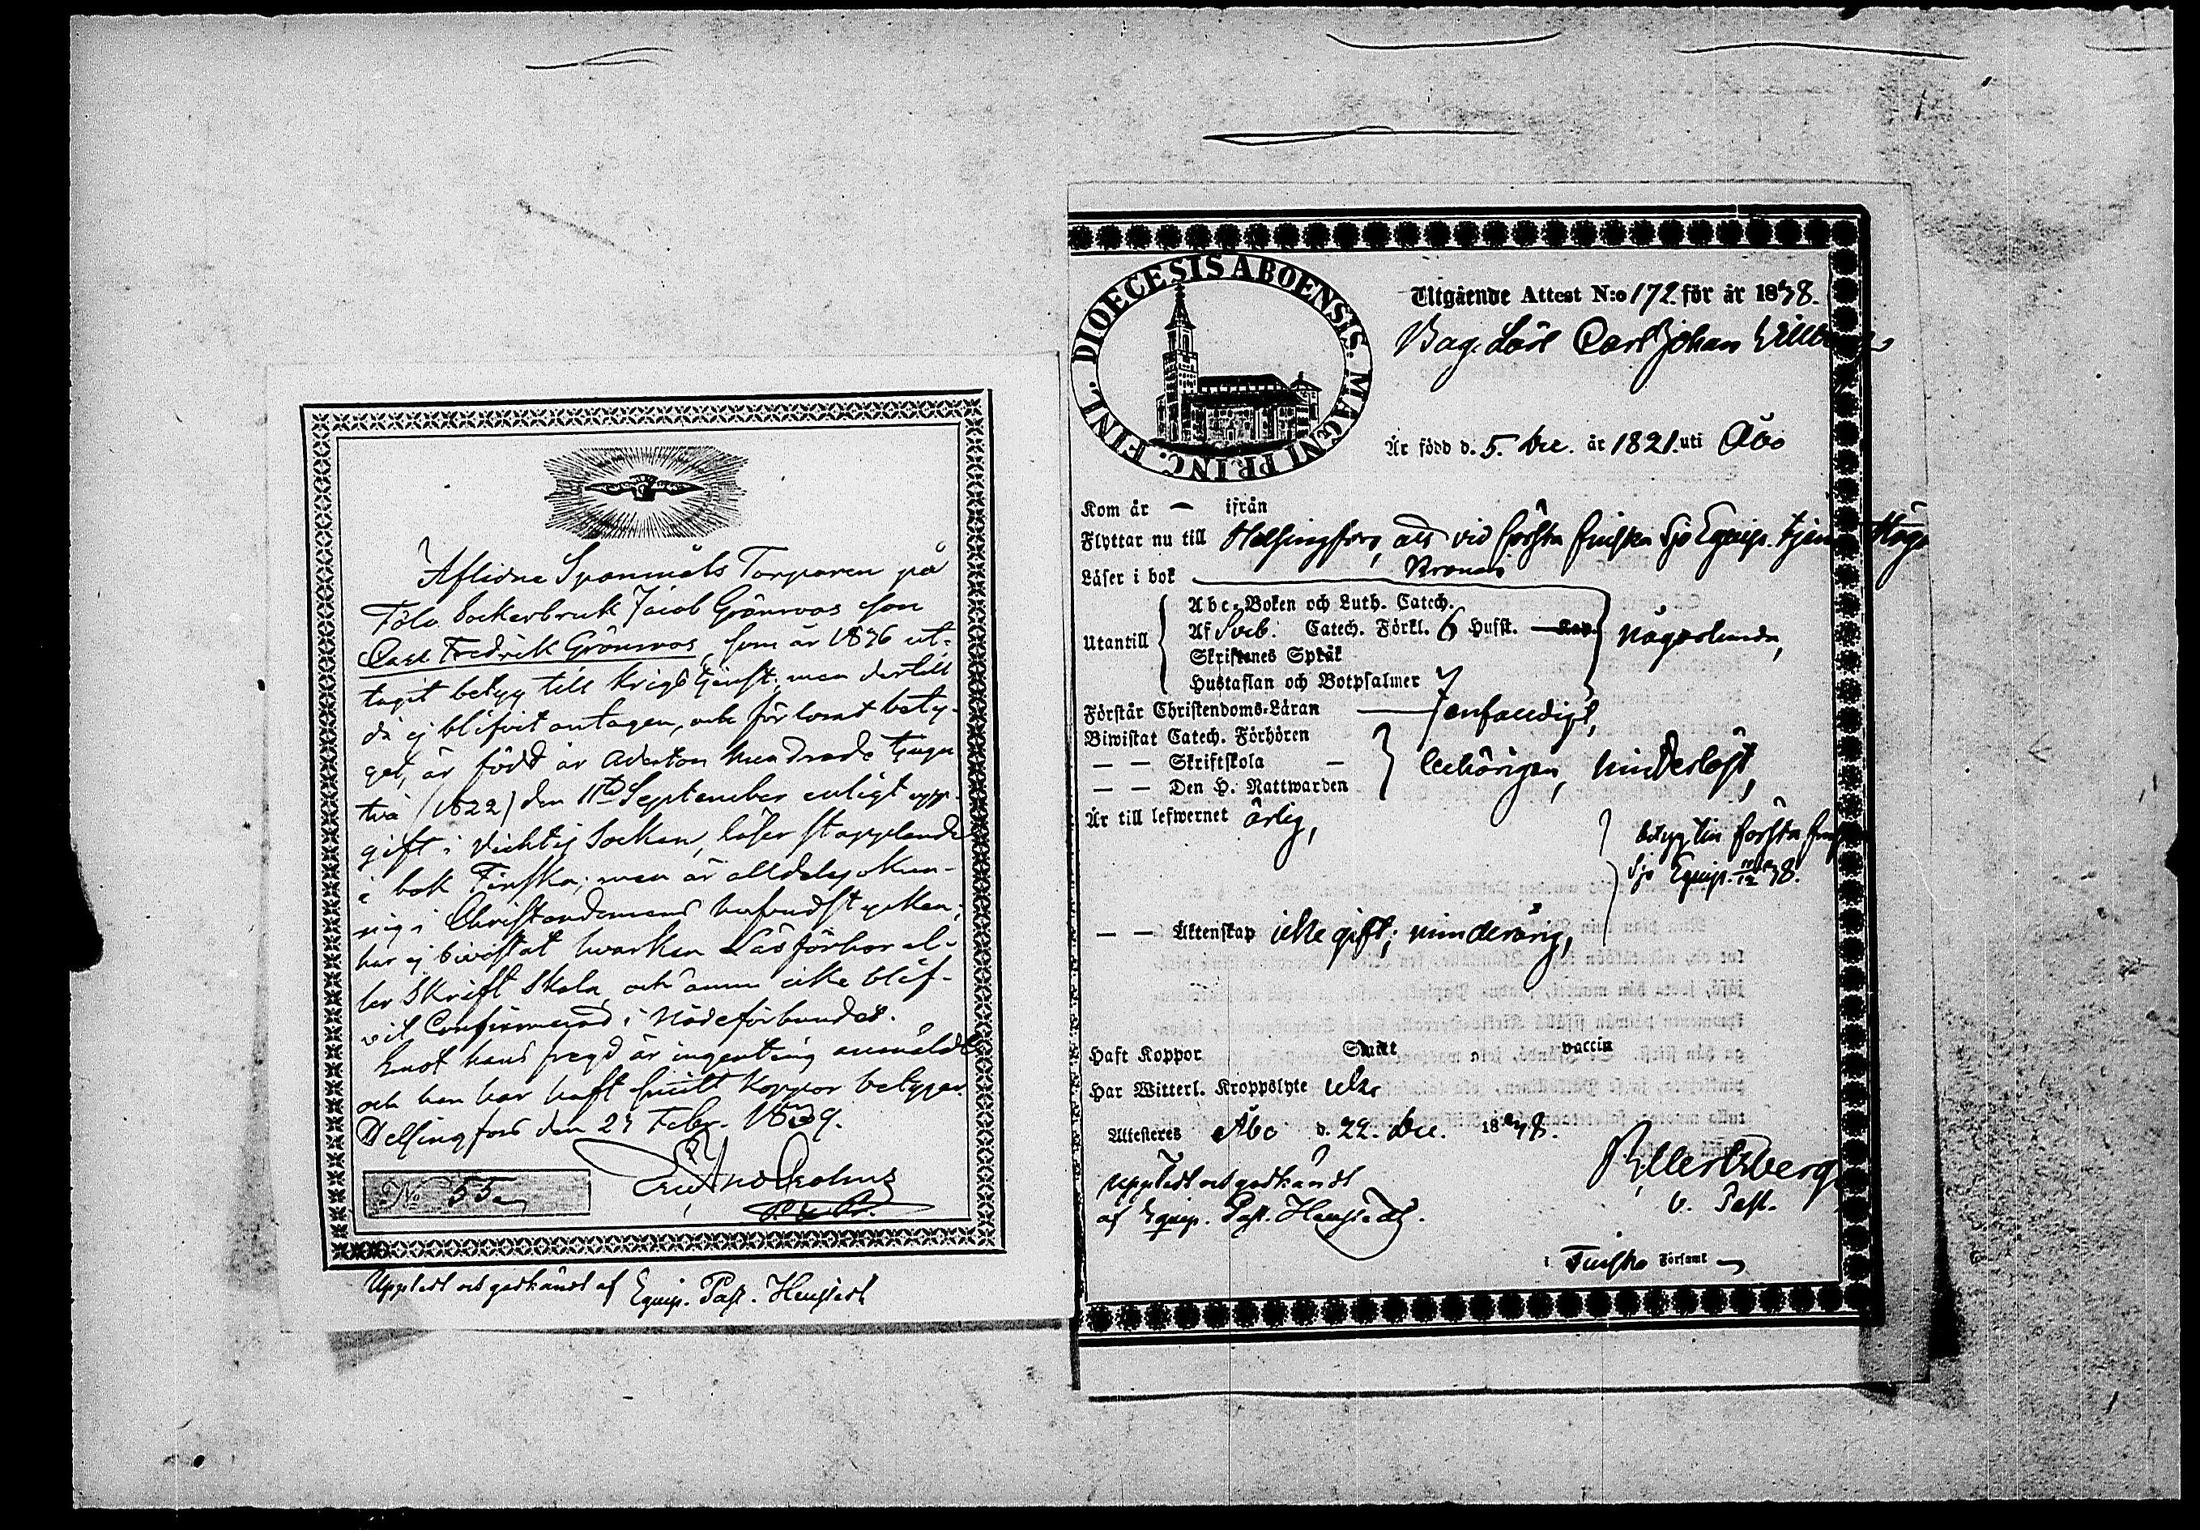 Aflidne Spanmåls Torparen på
Tölo Sockerbruk Jacob Grönroos son
Carl Fredrik Grönroos, som år 1836 ut-
tagit betyg till krigstjenst, men dertill
då ej blifvit antagen, och förlorat bety-
get, är född år aderton hundrade tjugu
två (1822) den 11te September enligt upp-
gift i Vichtis Socken, läser stapplande
i bok Finska; men är alldeles okun-
nig i Christendomens hufvudstycken;
har ej bivistat hvarken Läsförhör el-
ler Skrift Skola och ännu icke blif-
vit Confirmerad i Nådeförbundet.
Emot hans fregd är ingenting anmäldt
och han har haft smitt koppor betygar.
Helsingfors den 25 Febr. 1839.
No 55
Uppläst och godkändt af Equip. Past.
DIOECESIS ABOENSIS. MAGNI PRINC. FINL.
Utgående Attest N:o 172 för år 1838.
Carl Johan
Är född d. 5. Dec. år 1821. uti Åbo
Kom år — ifrån
Flyttar nu till Helsingfors, att vid första finska Sjö Equip. tjena Höga
Kronan
Läser i bok
Abc-Boken och Luth. Catech.
Utantill Af Sveb. Catech. Förkl. 6 Hufst. — någorlunda,
Skriftenes Språk
Hustaflan och Botpsalmer
Förstår Christendoms-Läran — enfaldigt,
Biwistat Catech. Förhören
— — Skriftskola —
— — Den H. Nattwarden
Är till lefwernet ärlig,
betyg till första
Sjö Equip. 38.
— — Äktenskap icke gift; minderårig,
Haft Koppor vaccin
Har Witterl. Kroppslyte icke
Attesteres Åbo d. 22. Dec. 1838.
v. Past.
Uppläst och godkändt
af Equip. Past.
i Finska Församl